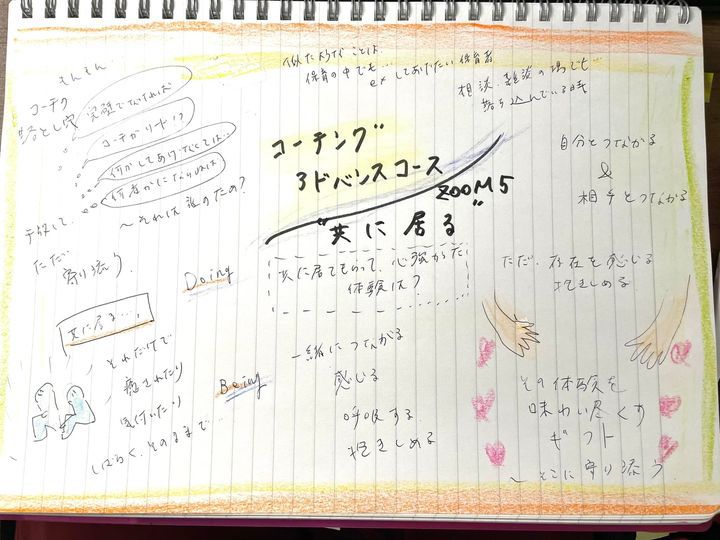 似たようなことは
保育の中でも…
ex してあげたい保育者
相談・雑談の場でも…
落ち込んでいる時
そもそも
コーチの
落とし穴
完璧でなければ
コーチがリード!?
何かしてあげなくては…
何者かにならねば
〜それは誰のため?
手放して、
ただ
寄り添う。
コーチング
アドバンスコース
ZOOM5
"共に居る"
自分とつながる
&
相手とつながる
Doing
共に居てもらって、心強かった
体験は?
ただ、存在を感じる
抱きしめる
共に居る…。
それだけで
癒されたり
気付いたり
しばらく、そのままで…
Being
一緒につながる
感じる
呼吸する
抱きしめる
その体験を
味わい尽くす
ギフト
〜そこに寄り添う